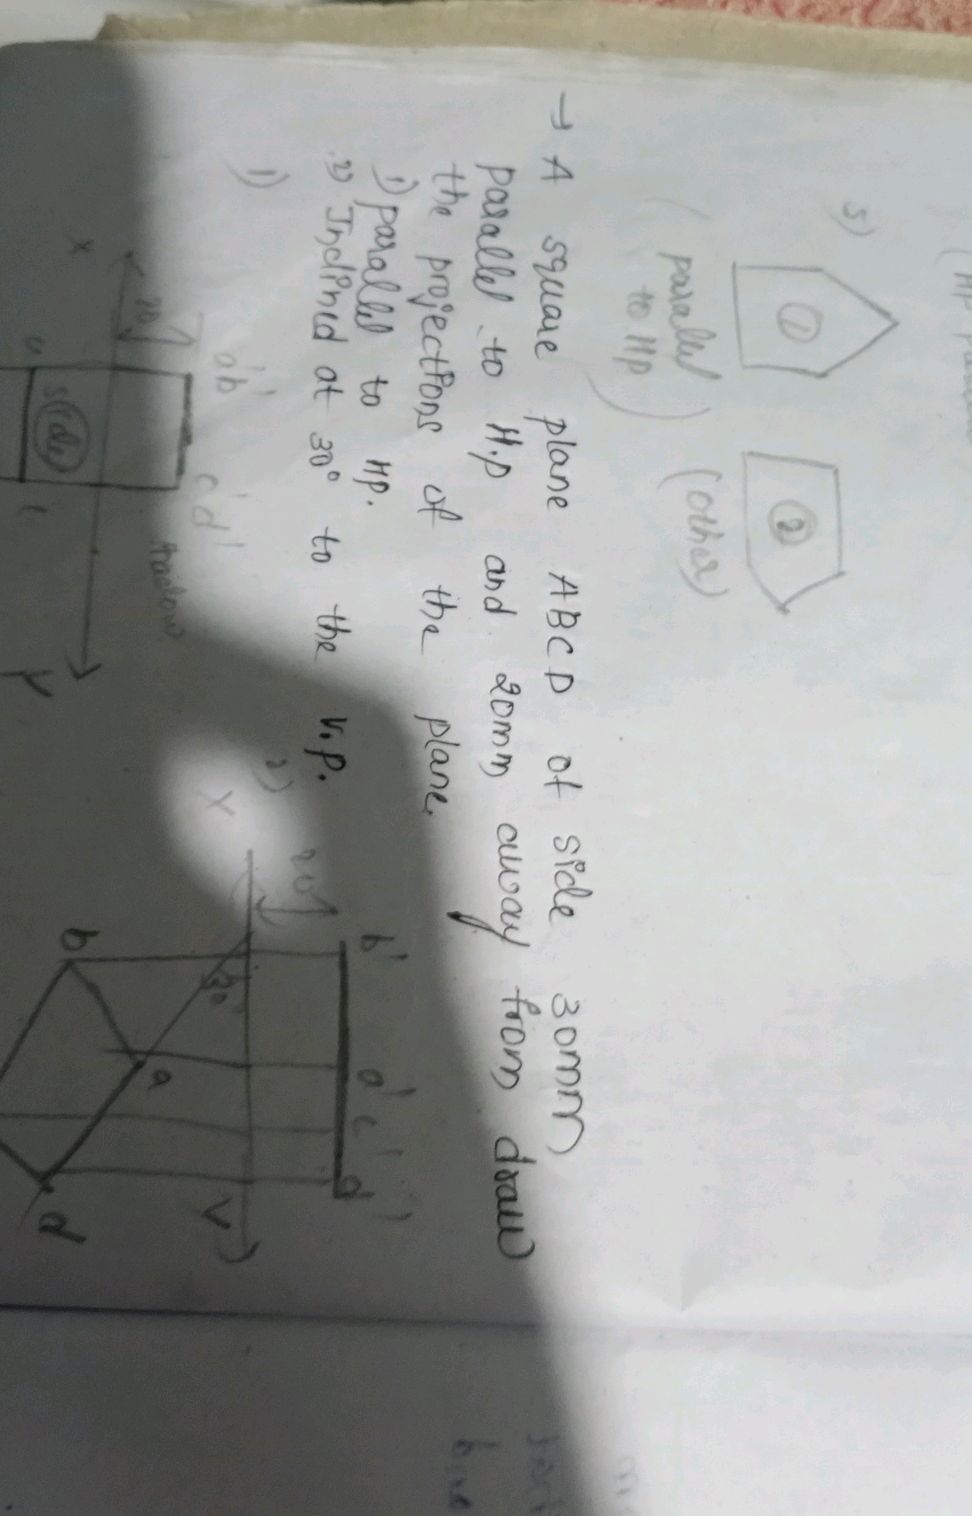 5)
①
②
(parallel
to HP)
(other)
→ A square plane ABCD of side 30mm
parallel to H.P and 20mm away from draw
the projections of the plane.
1) parallel to HP.
2) Inclined at 30° to the V.P.
1)
a'b'
c'd'
20
X
Y
2)
X
20
b'
a'
c'
d'
30°
a
b
d